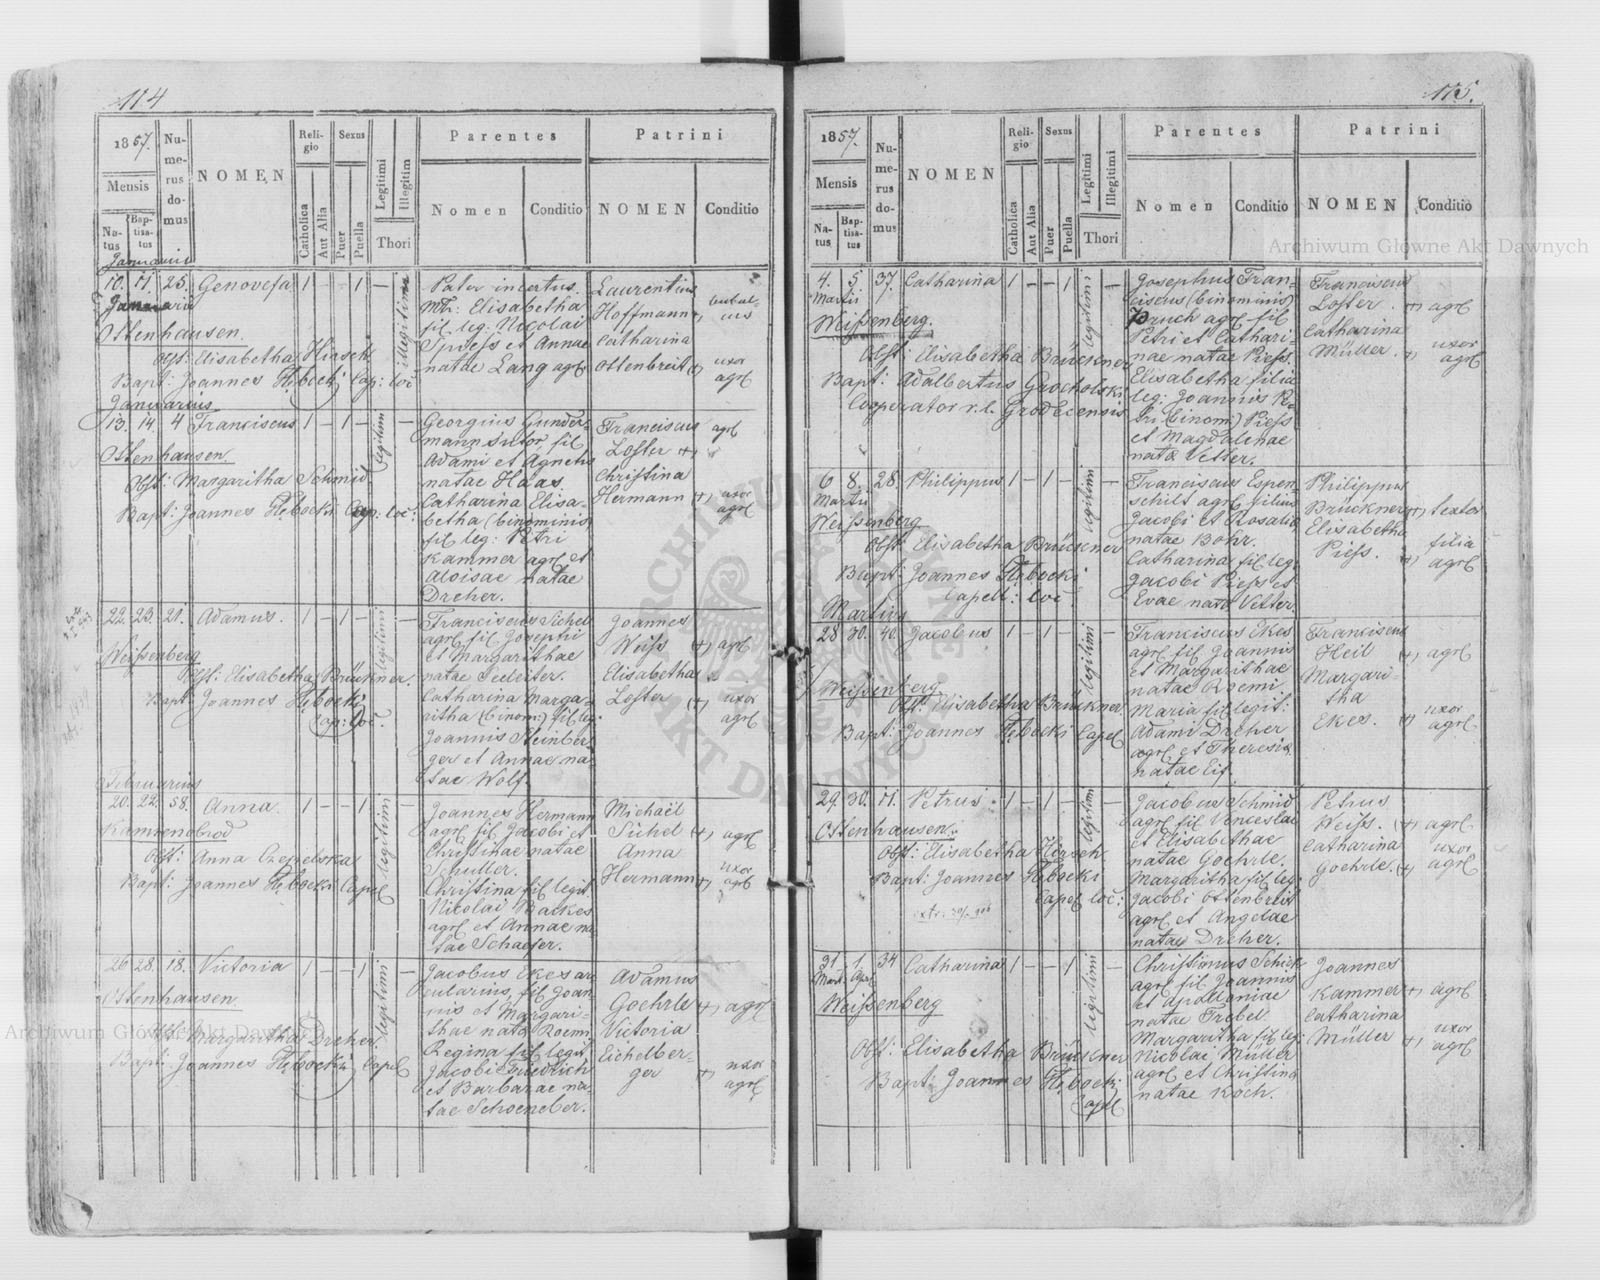 114
1857.
Mensis
Natus
Baptisatus
Numerus domus
NOMEN
Religio
Catholica
Aut Alia
Sexus
Puer
Puella
Legitimi
Illegitim
Thori
Parentes
Nomen
Conditio
Patrini
NOMEN
Conditio
Januarii
10. 11. 25. Genovefa 1 – – 1 –
Ostenhausen.
Obst: Elisabetha Hirsch
Bapt: Joannes Hłębocki Cap: loc:
illegitima
Pater incertus.
Elisabetha
fil leg: Nicolai
Spiess et Annae
natae Lang agrl
Laurentius
Hoffmann
Catharina
Ostenbreit
uxor
agrl
Januarius
13. 14. 4 Franciscus 1 – 1 – –
Ostenhausen.
Obst: Margaritha Schmid
Bapt: Joannes Hłębocki Cap: loc:
legitimi
Georgius Gunder-
mann sutor, fil
Adami et Agnetis
natae Haas.
Catharina Elisa-
betha (binominis)
fil leg: Petri
Kammer agrl et
Aloisae natae
Dreher.
Franciscus
Loster
agrl
Christina
Hermann
uxor
agrl
22. 23. 21. Adamus. 1 – 1 – –
Weissenberg
Obst: Elisabetha Brückner.
Bapt: Joannes Hłębocki
Cap: loc:
legitimi
Franciscus Sichel
agrl fil Josephi
et Margarithae
natae Sedelter.
Catharina Marga-
ritha (binom:) fil leg:
Joannis Steinber-
ger et Annae na-
tae Wolf.
Joannes
Weiss
agrl
Elisabetha
Loster
uxor
agrl
Februarius
20. 22. 58. Anna. 1 – – 1 –
Kamienobrod
Obst: Anna Czepelska
Bapt: Joannes Hłębocki Capel
legitimi
Joannes Hermann
agrl fil Jacobi et
Christinae natae
Schuller.
Christina fil legit
Nicolai Backes
agrl et Annae na-
tae Schaefer.
Michaël
Sichel
agrl
Anna
Hermann
uxor
agrl
26. 28. 18. Victoria 1 – – 1 –
Ostenhausen
Obst: Margaritha Dreher
Bapt: Joannes Hłębocki Capel
legitimi
Jacobus Ekes ar-
cularius, fil Joan-
nis et Margari-
thae nata Roemi
Regina fil legit
Jacobi Friedrich
et Barbarae na-
tae Schoeneber.
Adamus
Goehrle
agrl
Victoria
Eichelber-
ger
uxor
agrl
115.
1857.
Mensis
Natus
Baptisatus
Numerus domus
NOMEN
Religio
Catholica
Aut Alia
Sexus
Puer
Puella
Legitimi
Illegitimi
Thori
Parentes
Nomen
Conditio
Patrini
NOMEN
Conditio
4. 5. 37. Catharina 1 – – 1 –
Martii
Weissenberg.
Obst: Elisabetha Brückner
Bapt: Adalbertus Grocholski
Cooperator r. l. Grodecensis
legitimi
Josephus Fran-
ciscus (binominis)
Bruck agrl fil
Petri et Cathari-
nae natae Piess
Elisabetha filia
leg: Joannis Pe-
tri (binom:) Piess
et Magdalenae
nata Vetter.
Franciscus
Loster
agrl
Catharina
Müller
uxor
agrl
6 8. 28. Philippus 1 – 1 – –
Martii
Weissenberg
Obst Elisabetha Brückner
Bapt: Joannes Hłębocki
Capell: loc:
legitimi
Franciscus Espen-
schilt agrl filius
Jacobi et Rosalia
natae Bohr.
Catharina fil leg
Jacobi Piess et
Evae nata Vetter
Philippus
Brückner
textor
Elisabetha
Piess.
filia
agrl
Martius
28 30. 40. Jacobus 1 – 1 – –
Weissenberg
Obst: Elisabetha Brückner
Bapt: Joannes Hłębocki Capel
legitimi
Franciscus Ekes
agrl fil Joannis
et Margarithae
natae Roemi
Maria fil legit:
Adami Dreher
agrl et Theresia
natae Eif
Franciscus
Heil
agrl
Margari-
tha
Ekes.
uxor
agrl
29. 30. 11. Petrus. 1 – 1 – –
Ostenhausen.
Obst: Elisabetha Hirsch
Bapt: Joannes Hłębocki
Capel loc:
legitimi
Jacobus Schmid
agrl fil Venceslai
et Elisabethae
natae Goehrle.
Margaritha fil leg:
Jacobi Ostenbreit
agrl et Angelae
natae Dreher.
Petrus
Weiss.
agrl
Catharina
Goehrle.
uxor
agrl
31. 1. 34 Catharina 1 – – 1 –
Mart. Apr.
Weissenberg
Obst: Elisabetha Brückner
Bapt: Joannes Hłębocki
Capel
legitimi
Christianus Schick
agrl fil Joannis
et Apolloniae
natae Trebel
Margaritha fil leg:
Nicolai Müller
agrl et Christina
natae Koch.
Joannes
Kammer
agrl
Catharina
Müller
uxor
agrl
Archiwum Główne Akt Dawnych
Archiwum Główne Akt Dawnych
ARCHIWUM GŁÓWNE AKT DAWNYCH